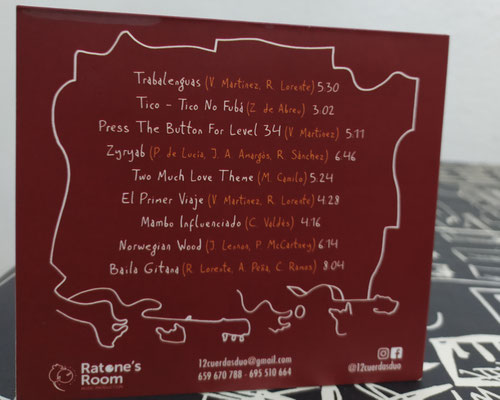 Trabalenguas (V. Martínez, R. Lorente) 5:30
Tico - Tico No Fubá (Z. de Abreu) 3:02
Press The Button For Level 34 (V Martínez) 5:11
Zyryab (P. de Lucía, J. A. Amargós, R. Sánchez) 6:46
Two Much Love Theme (M. Camilo) 5:24
El Primer Viaje (V. Martínez, R. Lorente) 4:28
Mambo Influenciado (C. Valdés) 4:16
Norwegian Wood (J. Lennon, P. McCartney) 6:14
Baila Gitana (R. Lorente, A. Peña, C. Ramos) 8:04
Ratone's
Room
12cuerdasduo@gmail.com
659 670 788 - 695 510 664
@12cuerdasduo